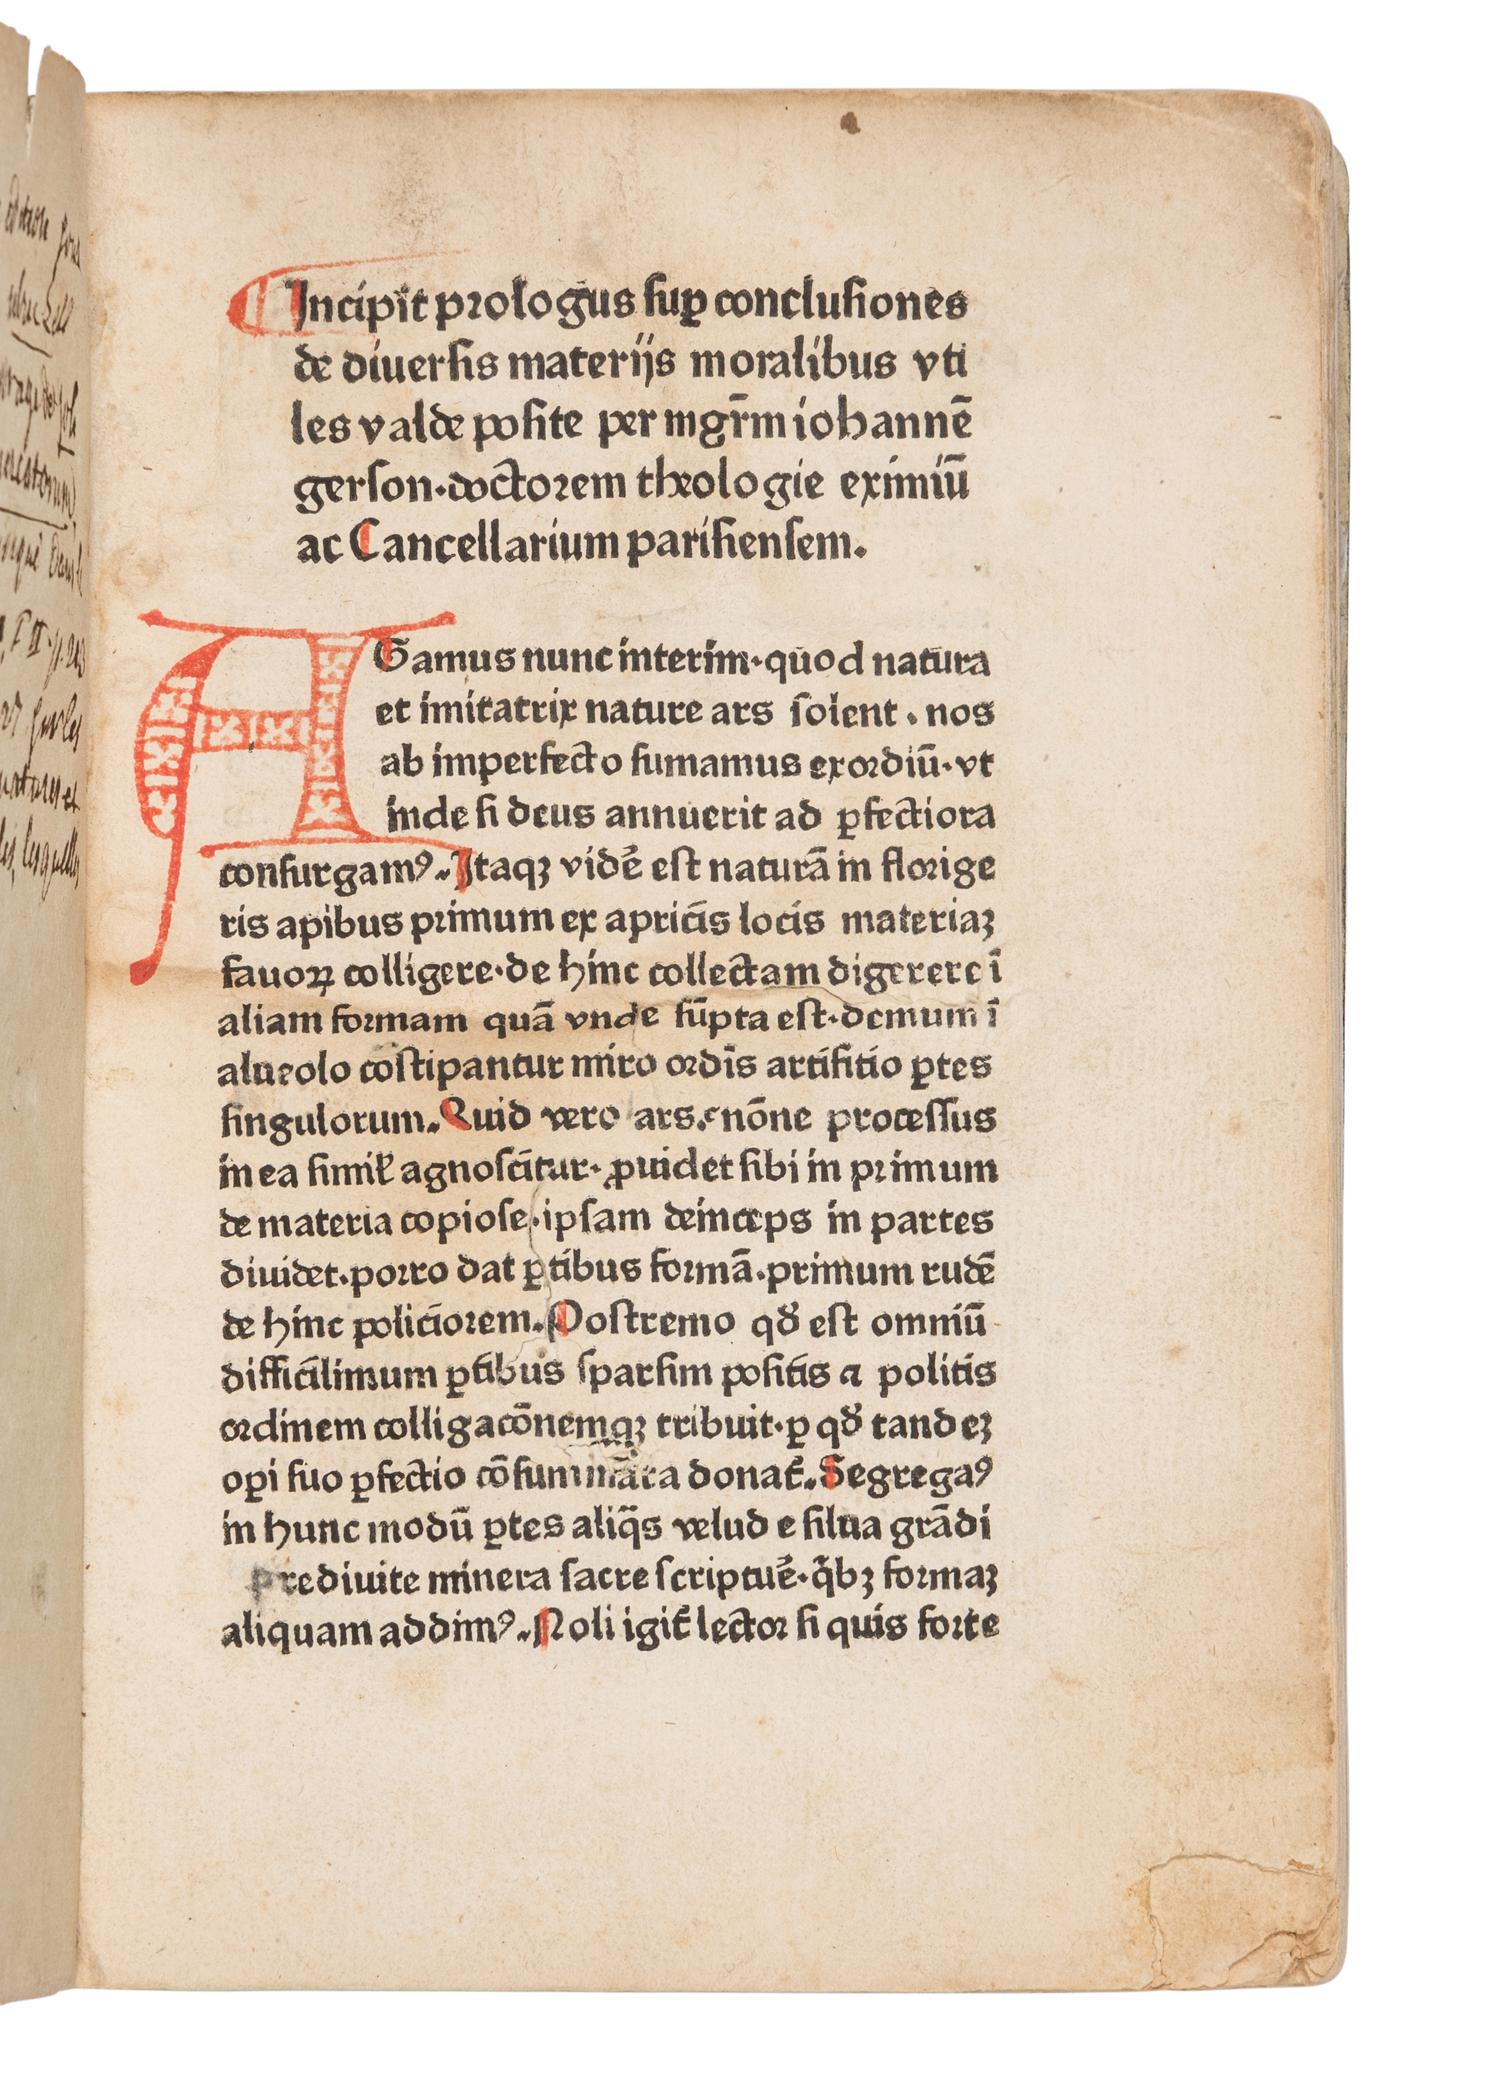 Incipit prologus suꝑ conclusiones
de diuersis materijs moralibus vti
les valde posite per mgr̄m iohannē
gerson·doctorem theologie eximiū
ac Cancellarium parisiensem.
AGamus nunc interim·quod natura
et imitatrix nature ars solent·nos
ab imperfecto sumamus exordiū·vt
inde si deus annuerit ad ꝑfectiora
consurgamꝰ. Itaqꝫ vidē est naturā in florige
ris apibus primum ex apricis locis materiaꝫ
fauoꝝ colligere·de hinc collectam digerere ī
aliam formam quā vnde sūpta est·demum ī
alueolo costipantur miro ordīs artifitio ꝑtes
singulorum. Quid vero ars. nōne processus
in ea simił agnoscitur·ꝓuidet sibi in primum
de materia copiose·ipsam deinceps in partes
diuidet·porro dat ꝑtibus formā·primum rudē
de hinc policiorem. Postremo qđ est omniū
difficilimum ꝑtibus sparsim positis ⁊ politis
ordinem colligacōnemqꝫ tribuit·ꝑ qđ tandeꝫ
oꝑi suo ꝑfectio cōsummata donat̄. Segregaꝰ
in hunc modū ꝑtes aliq̄s velud e silua grādi
prediuite minera sacre scriptuē·q̄bꝫ formaꝫ
aliquam addimꝰ. Noli igit̄ lector si quis forte